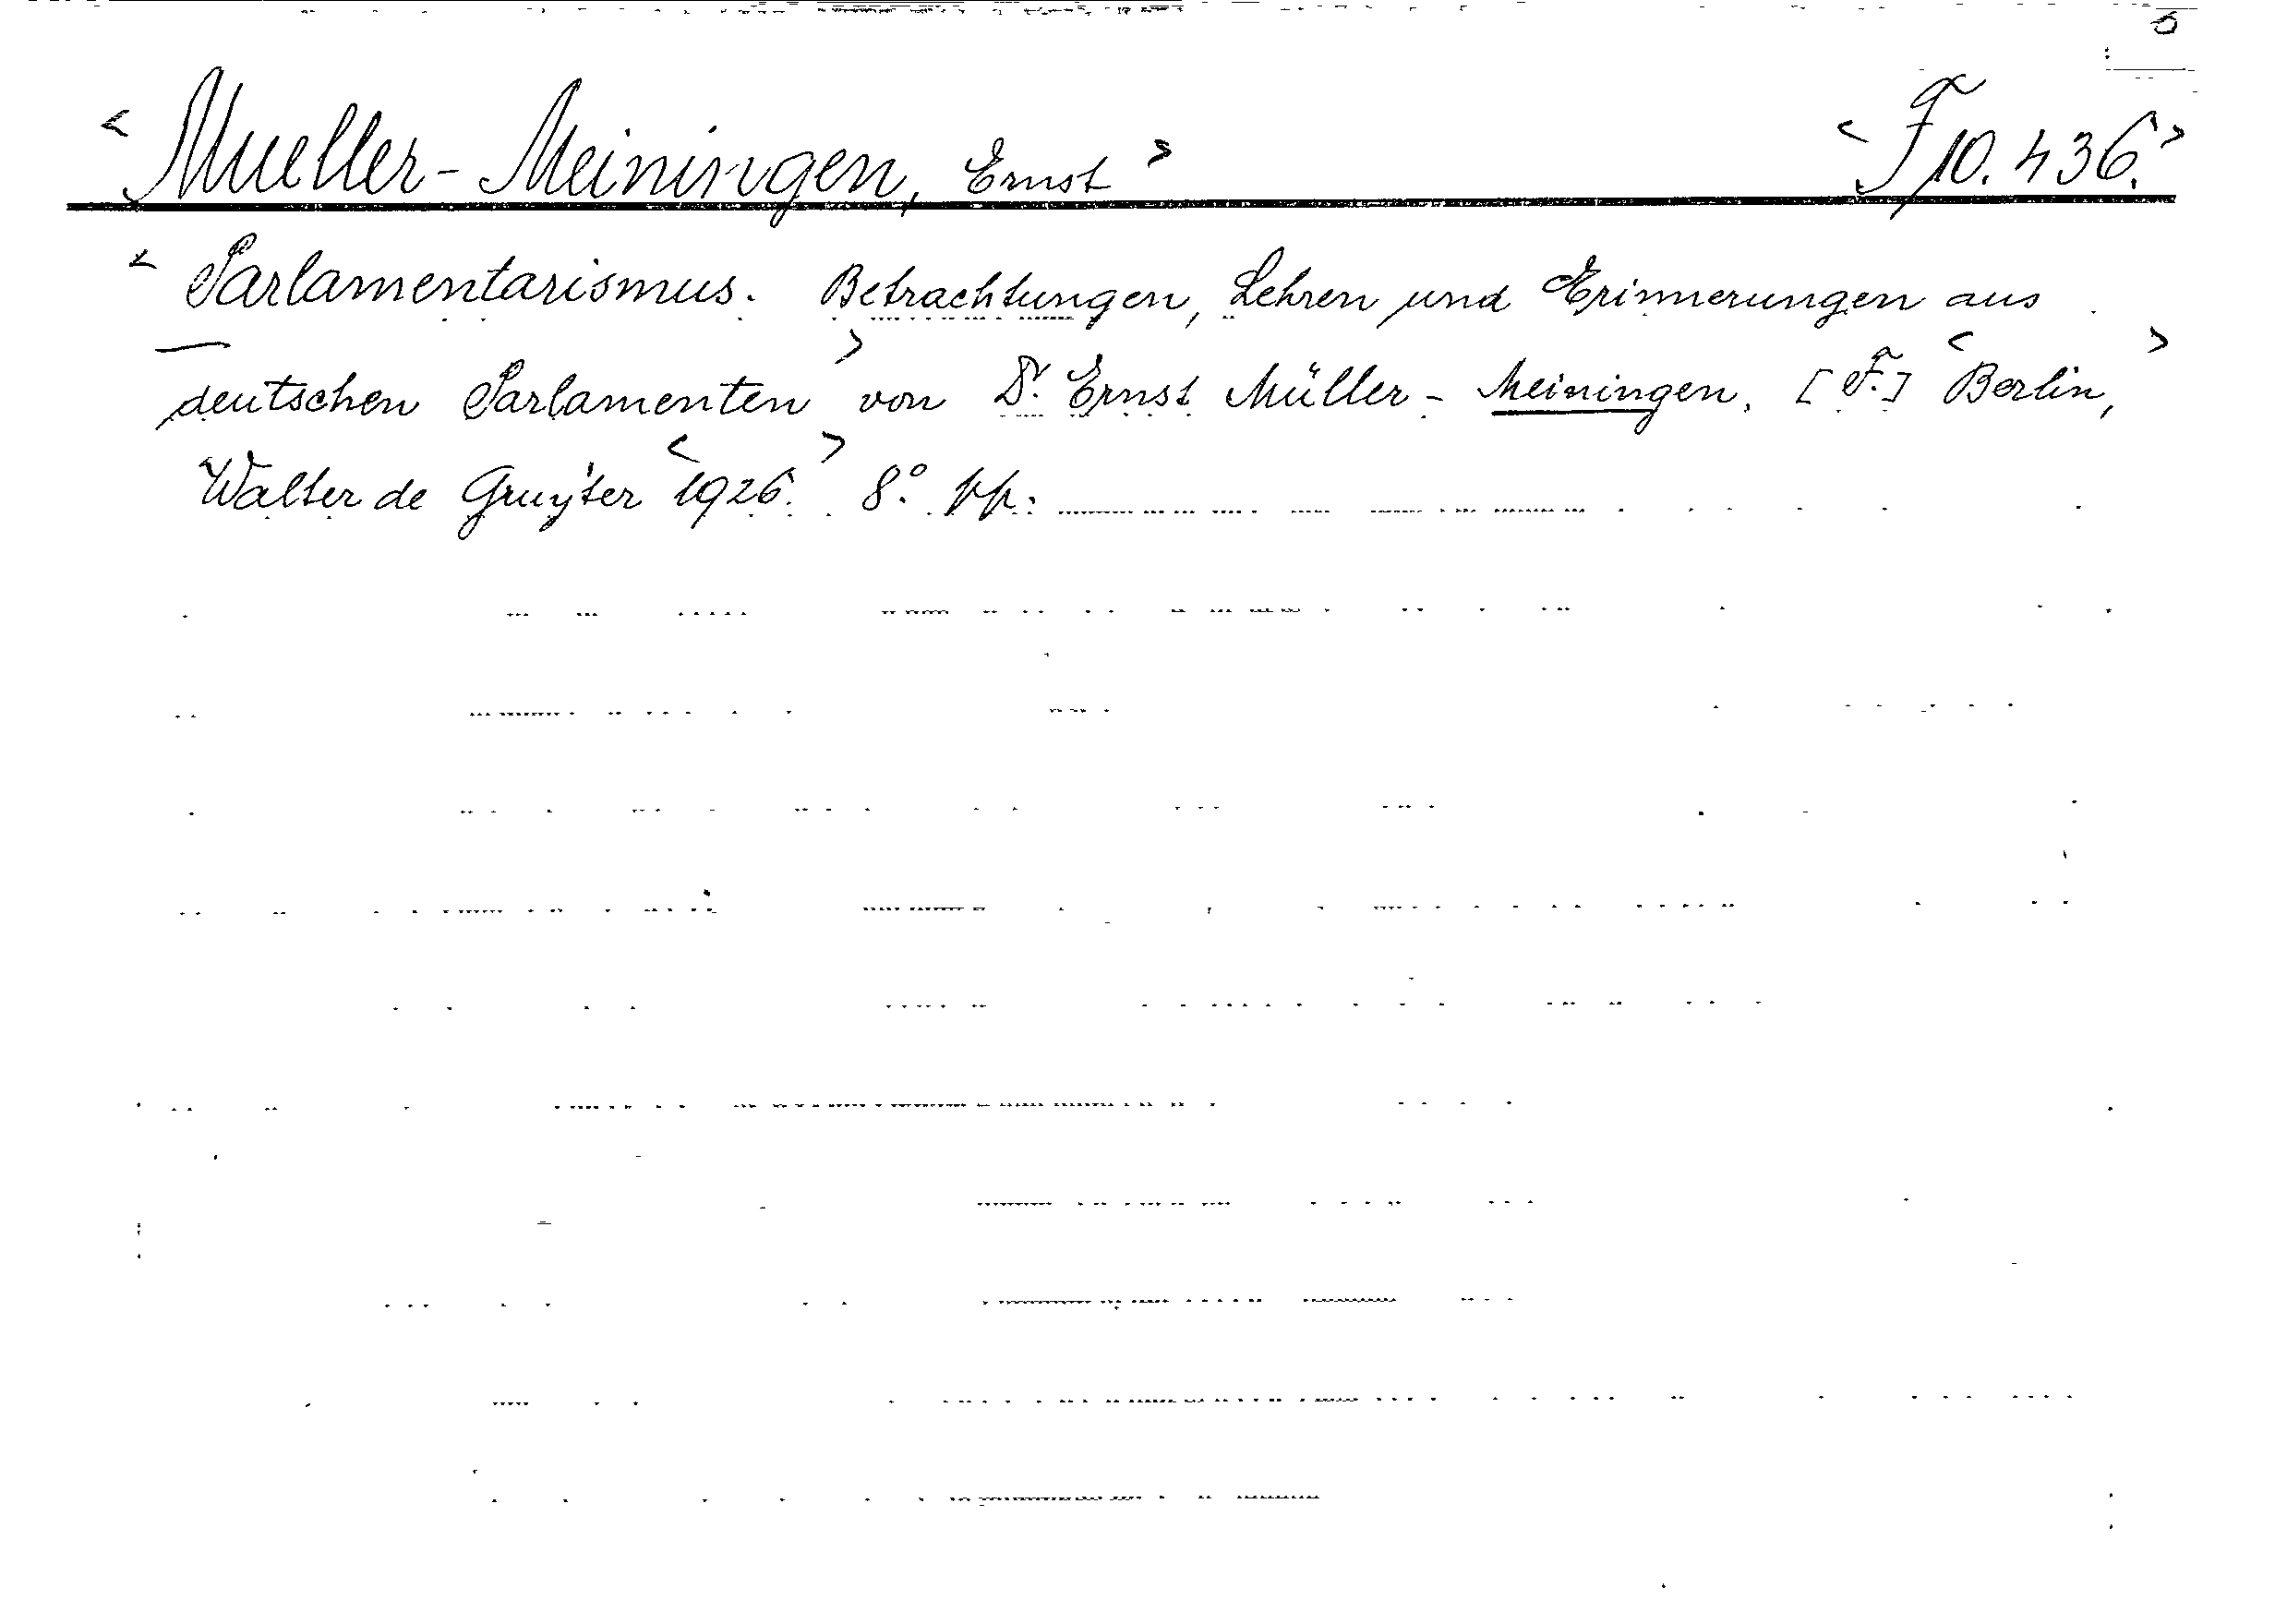 < Mueller-Meiningen, Ernst > < F 10.436. >
< Parlamentarismus. Betrachtungen, Lehren und Erinnerungen aus
deutschen Parlamenten > von Dr. Ernst Müller-Meiningen. [F.] < Berlin, >
Walter de Gruyter < 1926. > 8° pp.